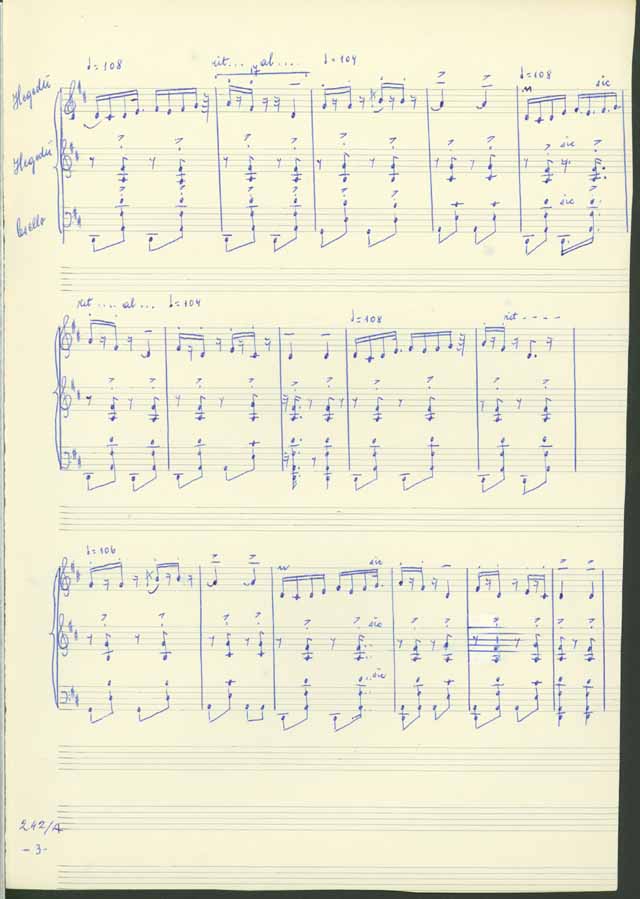 ♩=108 rit... al.... ♩=104 ♩=108
Hegedű sic
Hegedű sic
Csello sic
rit.... al... ♩=104 ♩=108 rit----
♩=106
sic
sic
sic
242/A
-3-